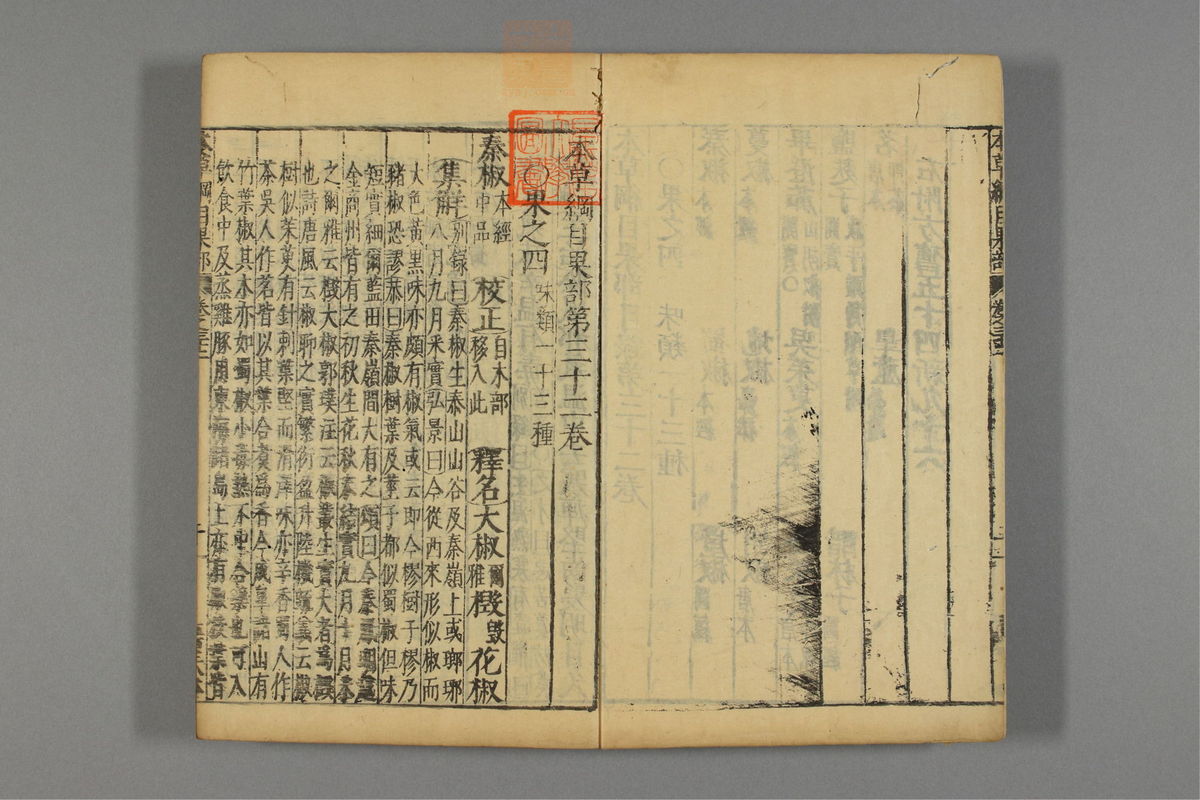 本草綱目果部第三十二卷
○果之四 味類一十三種
秦椒 本經中品 校正 自木部移入此 釋名大椒 爾雅 檓 毀 花椒
集解 別錄曰秦椒生泰山山谷及秦嶺上或瑯琊
八月九月采實弘景曰今從西來形似椒而
大色黃黑味亦頗有椒氣或云即今樛樹子樛乃
豬椒恐謬恭曰秦椒樹葉及莖子都似蜀椒但味
短實細爾藍田秦嶺間大有之頌曰今秦
金商州皆有之初秋生花秋末結實九月十月采
之爾雅云檓大椒郭璞注云椒叢生實大者為檓
也詩唐風云椒聊之實繁衍盈升陸機疏義云椒
樹似茱萸有針刺葉堅而滑澤味亦辛香蜀人作
茶吳人作茗皆以其葉合煮為香今成皋諸山有
竹葉椒其木亦如蜀椒小毒熱不中合藥也可入
飲食中及蒸雞豚用東海諸島上亦有椒枝葉皆
本草綱目果部